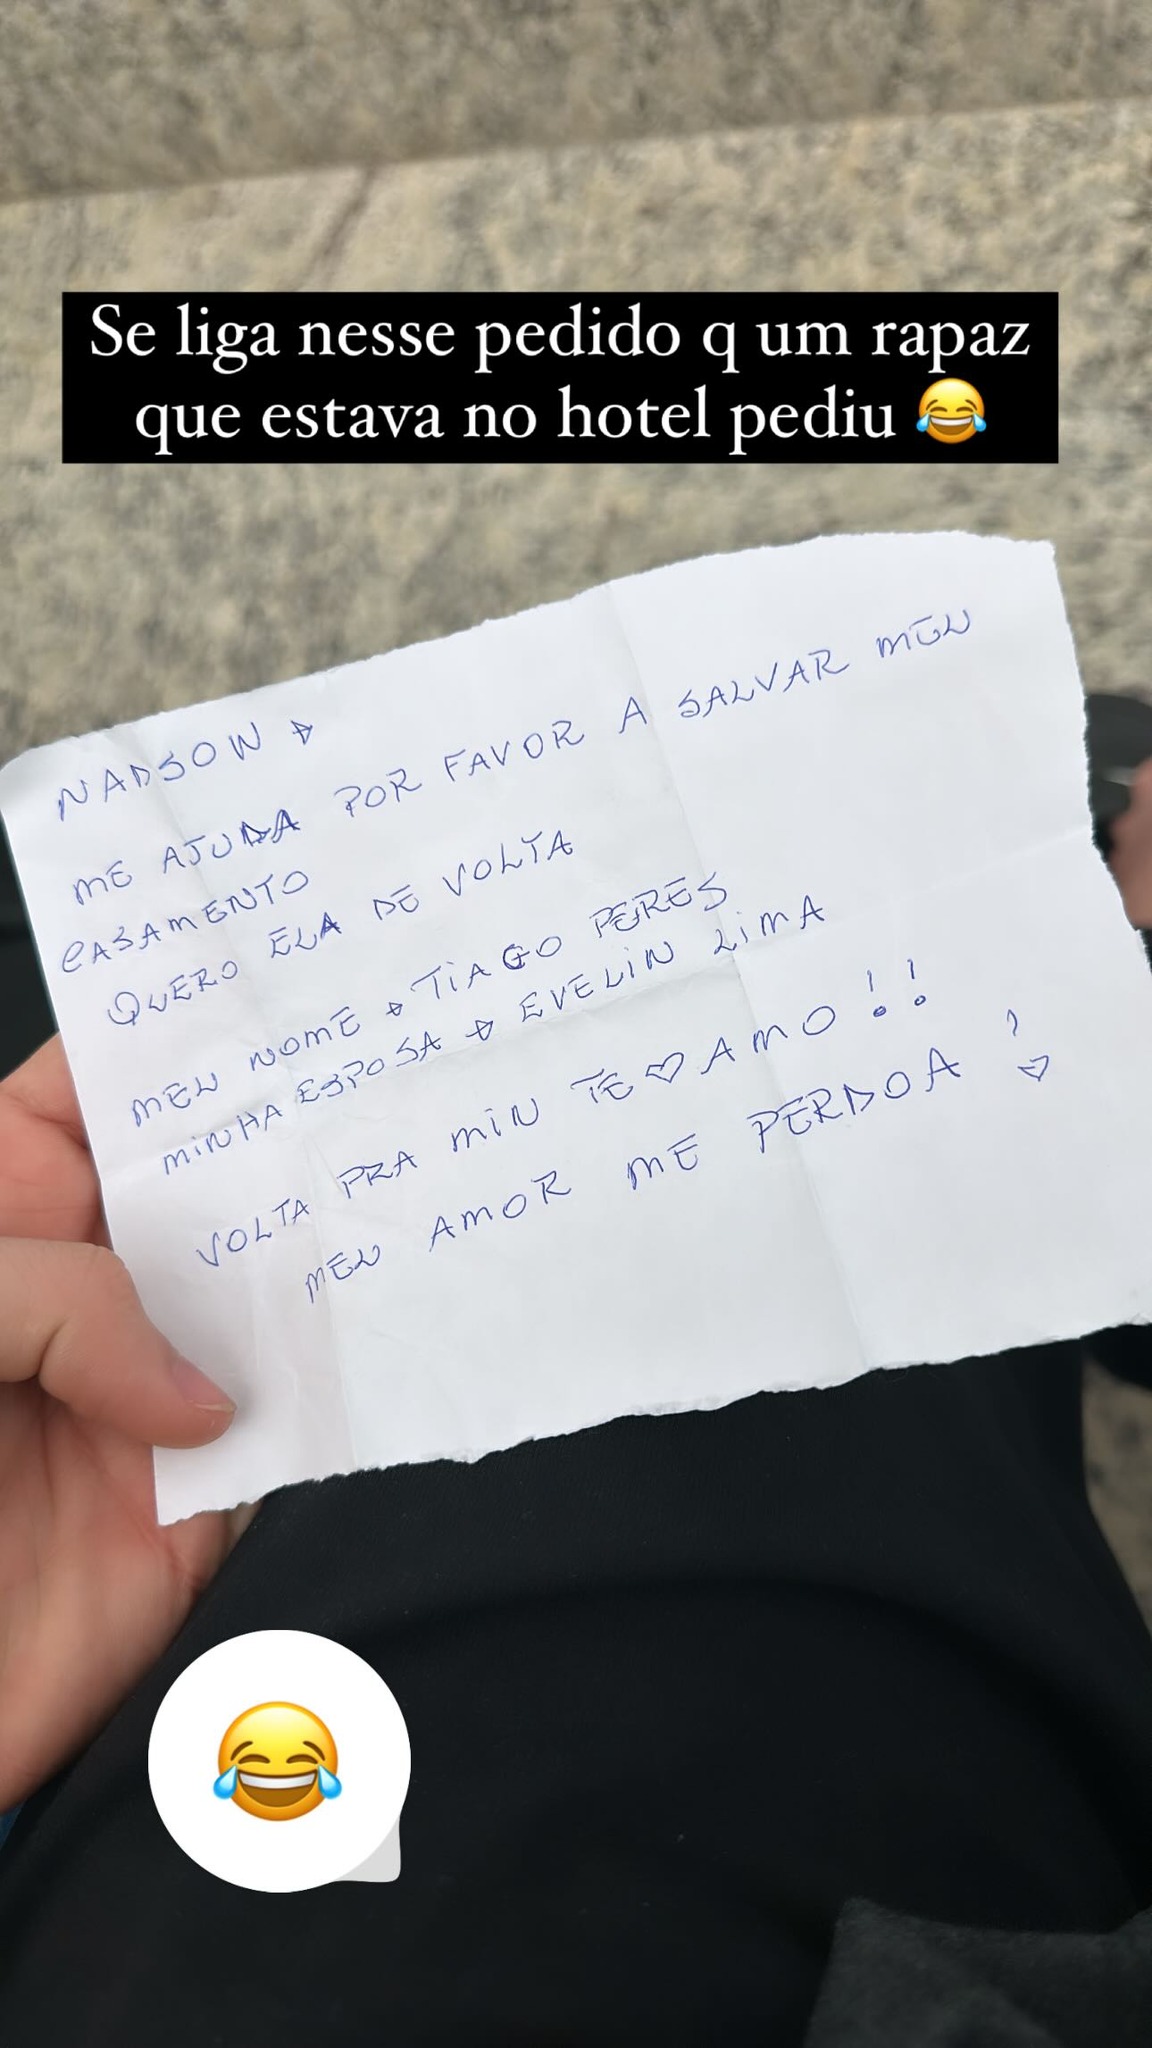 Se liga nesse pedido q um rapaz
que estava no hotel pediu 😂
NADSON
ME AJUDA POR FAVOR A SALVAR MEU
CASAMENTO
QUERO ELA DE VOLTA
MEU NOME TIAGO PERES
MINHA ESPOSA EVELIN LIMA
VOLTA PRA MIN TE ♡ AMO!!
MEU AMOR ME PERDOA!